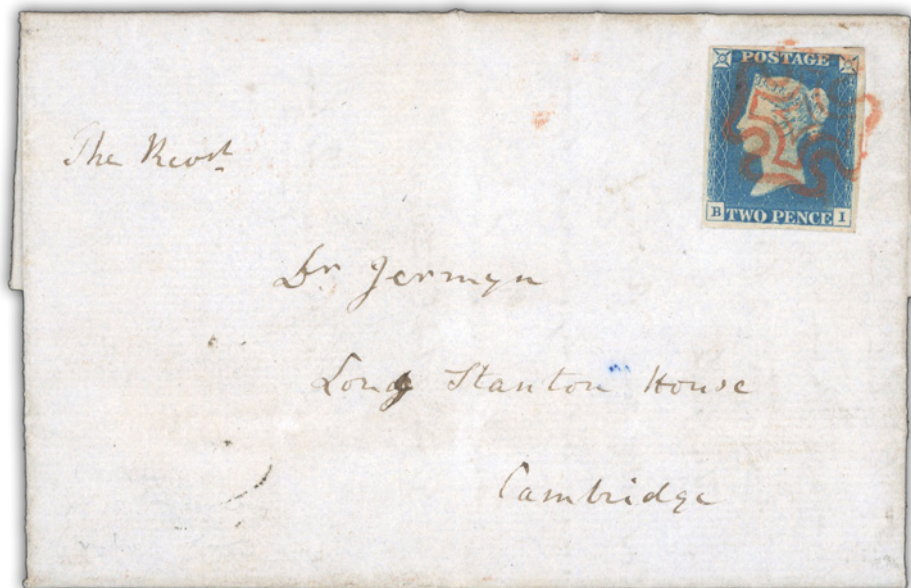 POSTAGE
B TWO PENCE I
The Revd
Dr Jermyn
Long Stanton House
Cambridge